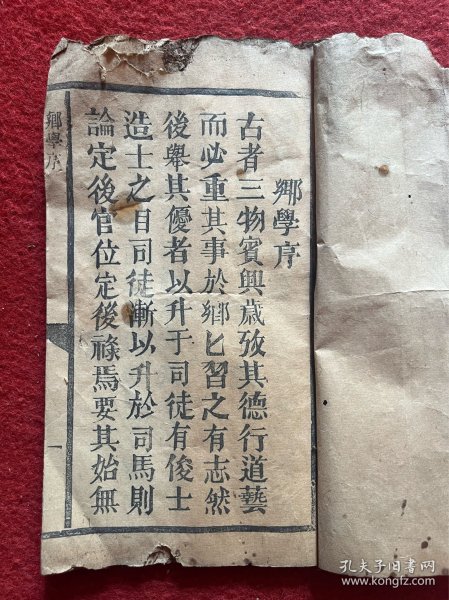 鄉學序
古者三物賓興歲攷其德行道藝
而必重其事於鄉匕習之有志然
後舉其優者以升于司徒有俊士
造士之目司徒漸以升於司馬則
論定後官位定後祿焉要其始無
鄉學序
一
孔夫子旧书网
www.kongfz.com